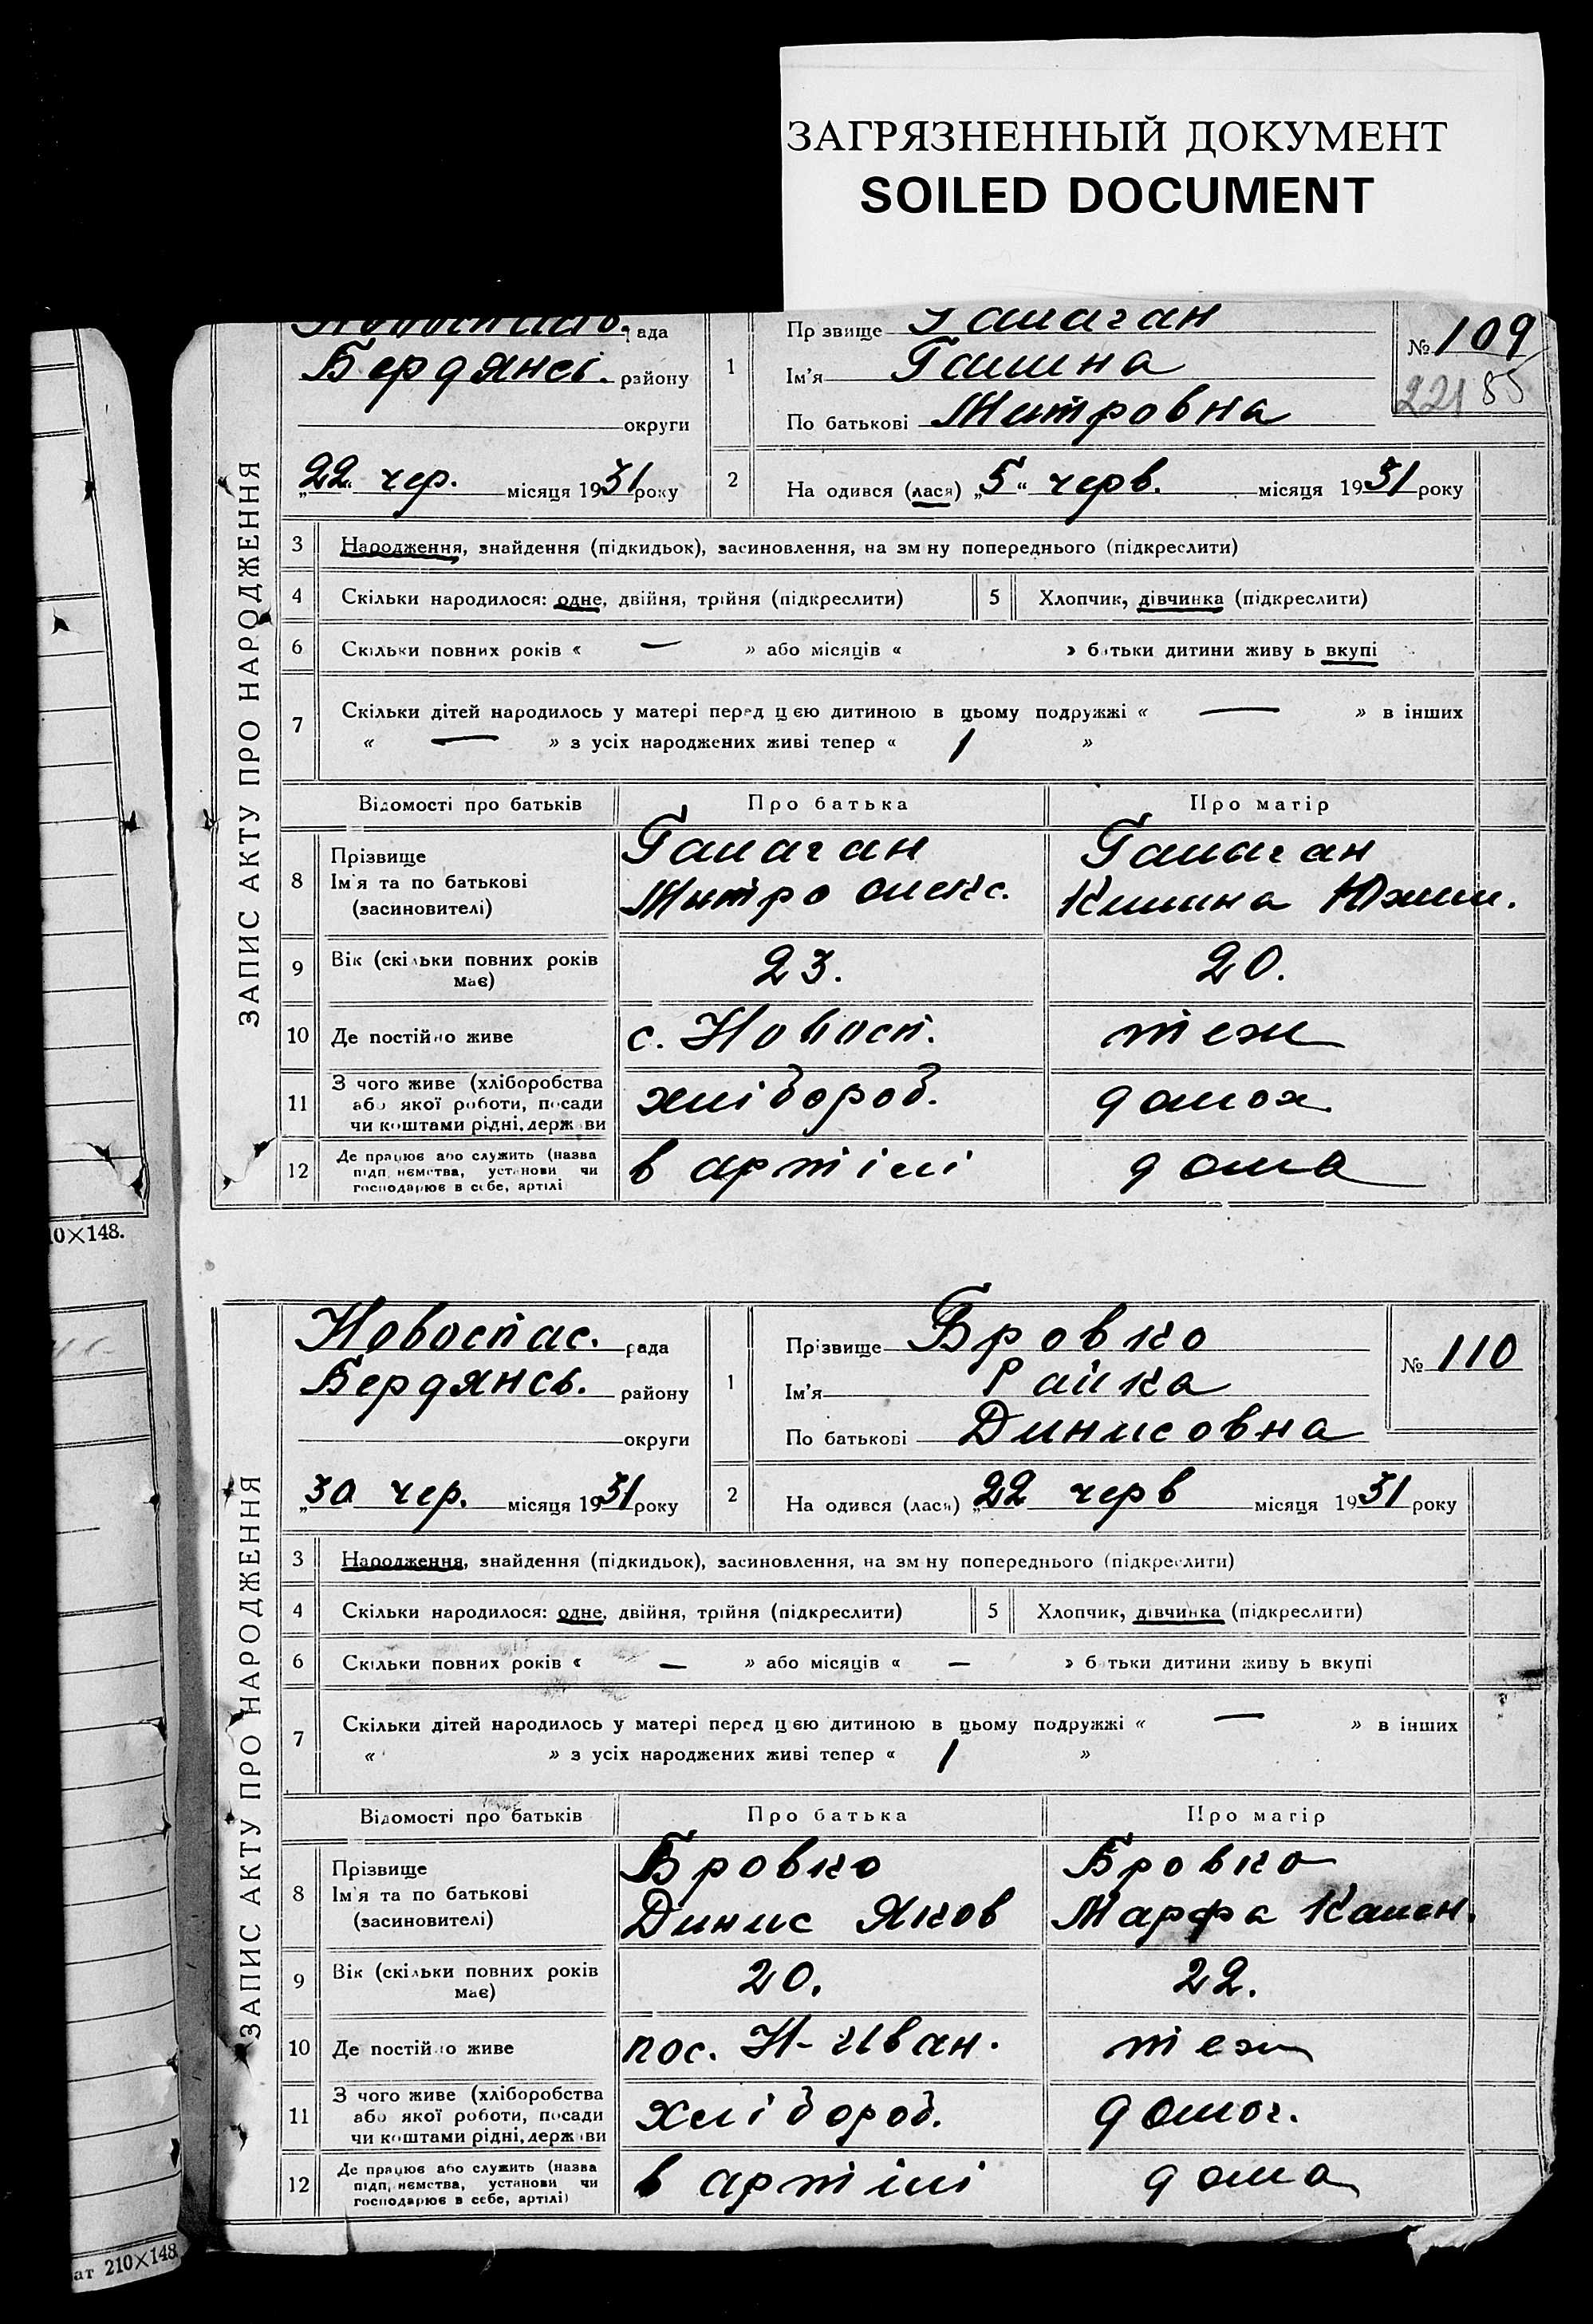 ЗАГРЯЗНЕННЫЙ ДОКУМЕНТ
SOILED DOCUMENT
рада
Бердянсь. району
округи
„22“ чер. місяця 1931 року
1 Прізвище Галаган
Ім'я Галина
По батькові Митровна
№ 109
221 85
2 На одився (лася) „5“ черв. місяця 1931 року
ЗАПИС АКТУ ПРО НАРОДЖЕННЯ
3 Народження, знайдення (підкидьок), засиновлення, на зм ну попереднього (підкреслити)
4 Скільки народилося: одне, двійня, трійня (підкреслити) 5 Хлопчик, дівчинка (підкреслити)
6 Скільки повних років « — » або місяців « » батьки дитини живу ь вкупі
7 Скільки дітей народилось у матері перед цією дитиною в цьому подружжі « — » в інших
« — » з усіх народжених живі тепер « 1 »
Відомості про батьків Про батька Про матір
8 Прізвище Галаган Галаган
Ім'я та по батькові Митро Олекс.
(засиновителі)
9 Вік (скільки повних років має) 23. 20.
10 Де постійно живе с. Новосп. теж
11 З чого живе (хліборобства або якої роботи, посади чи коштами рідні, держави хлібороб. домох.
12 Де працює або служить (назва підп иємства, установи чи господарює в себе, артілі в артілі дома
10×148.
Новоспас. рада
Бердянсь. району
округи
„30 чер. місяця 1931 року
1 Прізвище Бровко
Ім'я Райка
По батькові Динисовна
№ 110
2 На одився (лася) „22 черв місяця 1931 року
ЗАПИС АКТУ ПРО НАРОДЖЕННЯ
3 Народження, знайдення (підкидьок), засиновлення, на зм ну попереднього (підкреслити)
4 Скільки народилося: одне, двійня, трійня (підкреслити) 5 Хлопчик, дівчинка (підкреслити)
6 Скільки повних років « — » або місяців « — » батьки дитини живу ь вкупі
7 Скільки дітей народилось у матері перед цією дитиною в цьому подружжі « — » в інших
« » з усіх народжених живі тепер « 1 »
Відомості про батьків Про батька Про матір
8 Прізвище Бровко Бровко
Ім'я та по батькові Динис Яков Марфа Кален.
(засиновителі)
9 Вік (скільки повних років має) 20. 22.
10 Де постійно живе пос. Н-Иван. теж
11 З чого живе (хліборобства або якої роботи, посади чи коштами рідні, держави хлібороб. домог.
12 Де працює або служить (назва підп иємства, установи чи господарює в себе, артілі) в артілі дома
ат 210×148